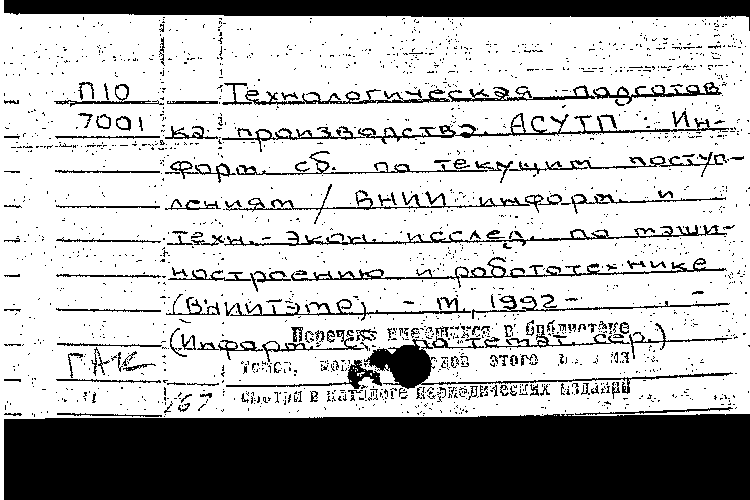 П10 Технологическая подготов
7001 ка производства. АСУТП : Ин-
форм. сб. по текущим поступ-
лениям / ВНИИ информ. и
техн.-экон. исслед. по маши-
ностроению и робототехнике
(ВНИИТЭМР) - М., 1992 - . -
(Информ. сб. по темат. сер.)
Перечень имеющихся в библиотеке
ГАК томов, этого
смотри в каталоге периодических изданий
167